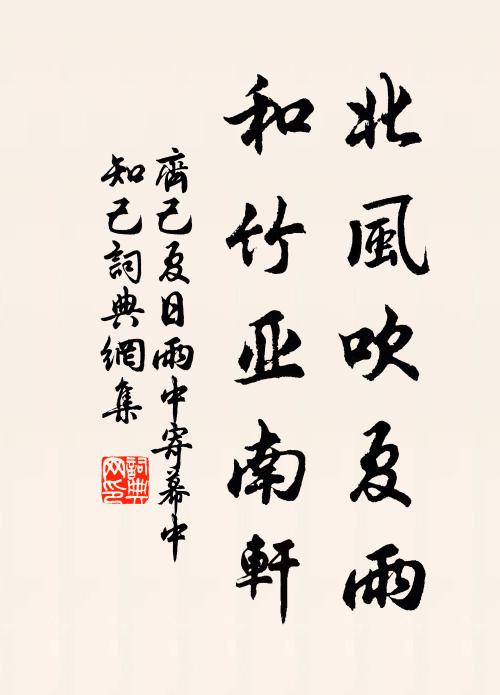 北風吹夏雨
和竹亚南軒
齊己夏日雨中寄幕中
知己詞典網集
詞典網印